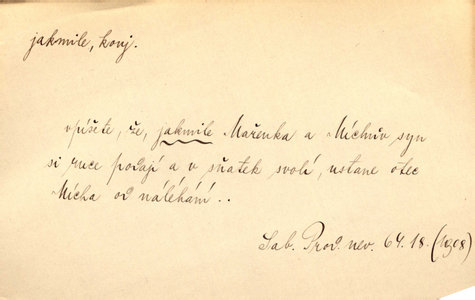 jakmile, konj.
vpíšete, že, jakmile Mařenka a Míchův syn
si ruce podají a v sňatek svolí, ustane otec
Mícha od náléhání..
Sab. Prod. nev. 64. 18. (1908)